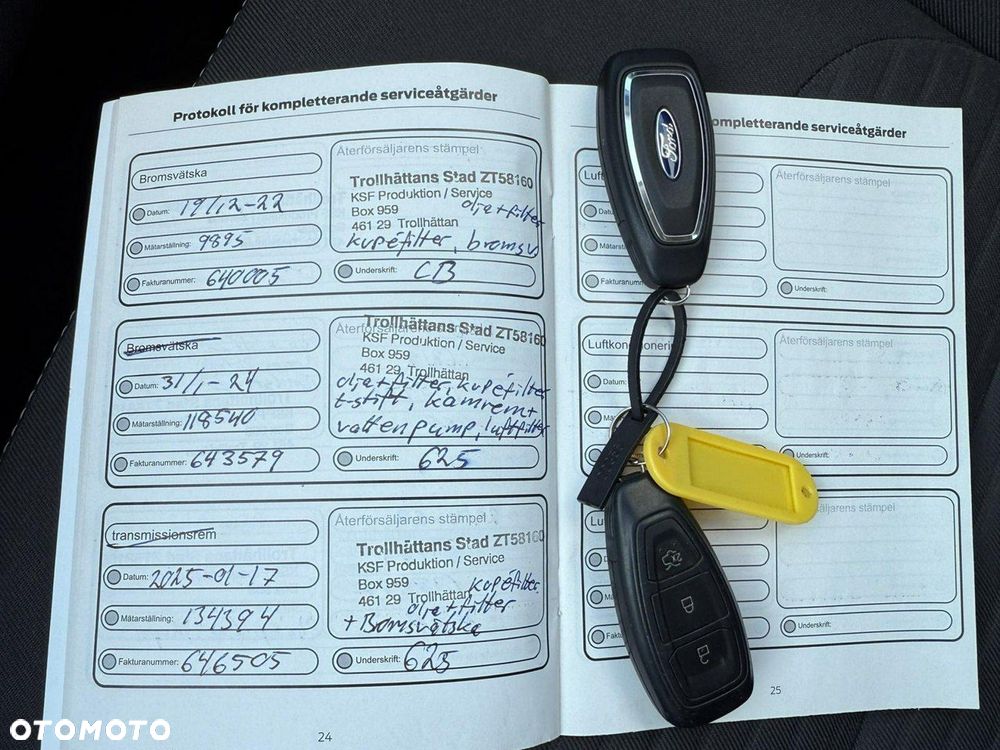 Protokoll för kompletterande serviceåtgärder
Bromsvätska
Datum: 19/12-22
Mätarställning: 9895
Fakturanummer: 640005
Återförsäljarens stämpel
Trollhättans Stad ZT58160
KSF Produktion / Service
Box 959
461 29 Trollhättan
olja+filter
kupéfilter, bromsv.
Underskrift: CB
Bromsvätska
Datum: 31/1-24
Mätarställning: 118540
Fakturanummer: 643579
Trollhättans Stad ZT58160
KSF Produktion / Service
Box 959
461 29 Trollhättan
olja+filter, kupéfilter
t-stift, kamrem+
vattenpump, luftfilter
Underskrift: 625
transmissionsrem
Datum: 2025-01-17
Mätarställning: 134394
Fakturanummer: 646505
Återförsäljarens stämpel
Trollhättans Stad ZT58160
KSF Produktion / Service
Box 959
461 29 Trollhättan
kupéfilter
olja+filter
+ Bromsvätska
Underskrift: 625
24
ompletterande serviceåtgärder
Luf
Återförsäljarens stämpel
Mätarställning
Fakturanummer:
Underskrift:
Luftkonditionering
Återförsäljarens stämpel
Datum:
Underskrift:
Återförsäljarens stämpel
Underskrift:
25
Ford
2x
OTOMOTO